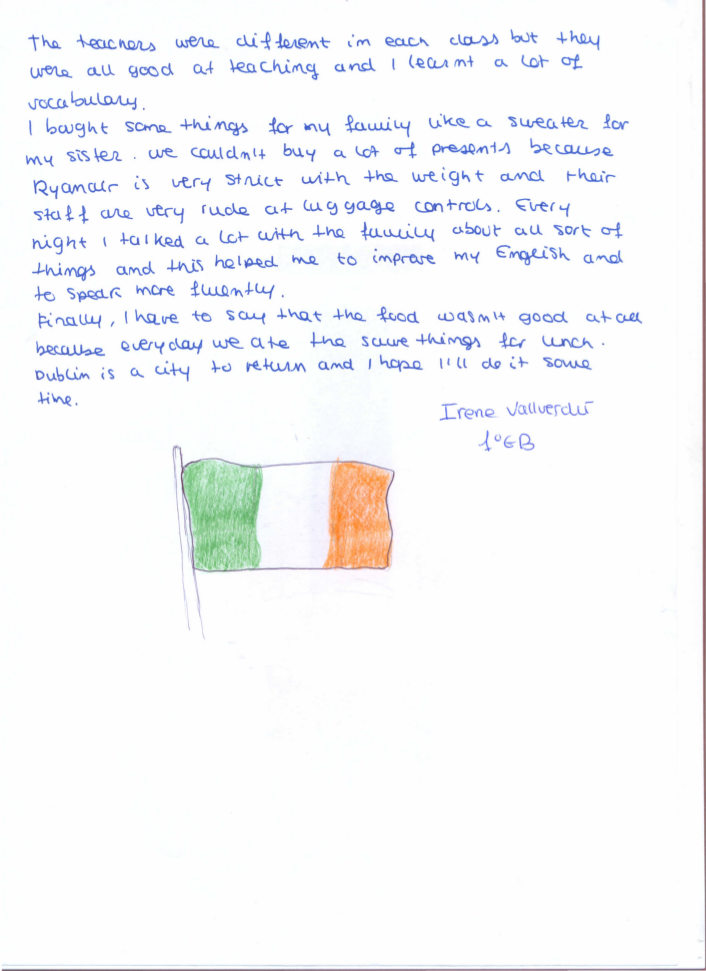 The teachers were different in each class but they
were all good at teaching and I learnt a lot of
vocabulary.
I bought some things for my family like a sweater for
my sister. We couldn't buy a lot of presents because
Ryanair is very strict with the weight and their
staff are very rude at luggage controls. Every
night I talked a lot with the family about all sort of
things and this helped me to improve my English and
to speak more fluently.
Finally, I have to say that the food wasn't good at all
because everyday we ate the same things for lunch.
Dublin is a city to return and I hope I'll do it some
time.
Irene Vallverdú
1ºEB